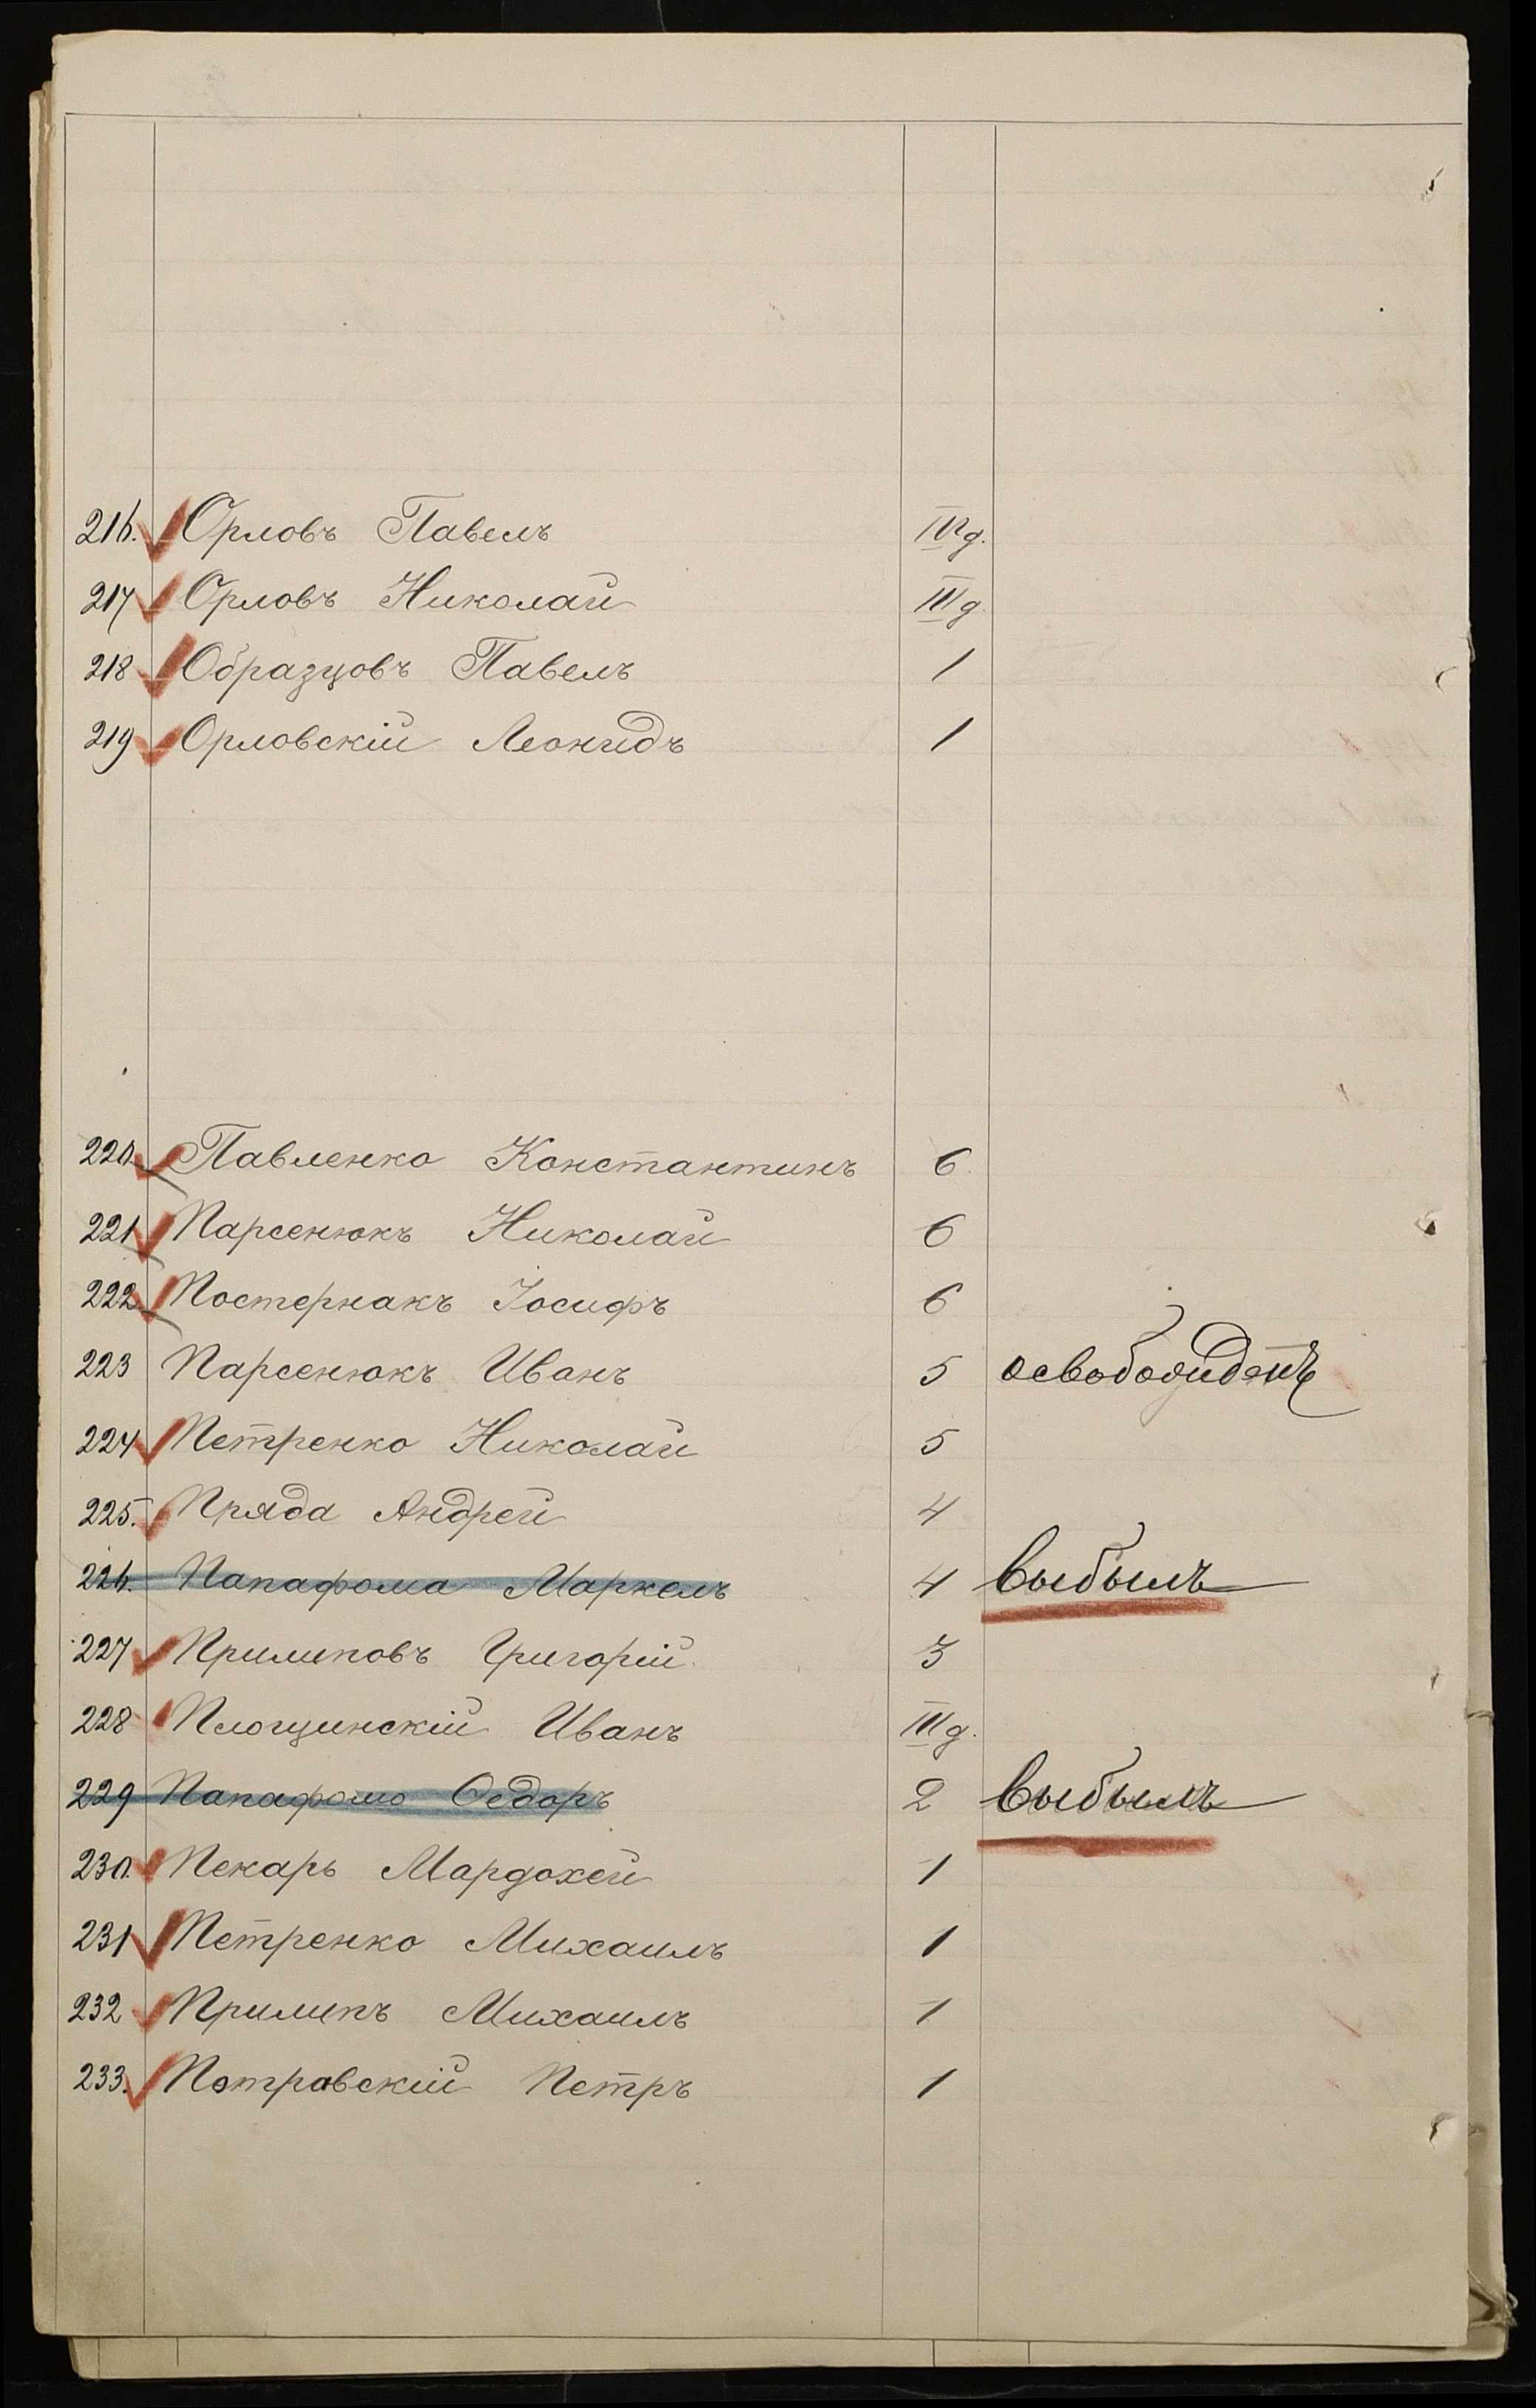 216. Орловъ Павелъ IVд.
217 Орловъ Николай IIIд.
218 Образцовъ Павелъ 1
219 Орловскій Леонидъ 1
220. Павленко Константинъ 6.
221 Парсенюкъ Николай 6
222. Постернакъ Іосифъ 6
223 Парсенюкъ Иванъ 5 освобожденъ
224 Петренко Николай 5
225. Пряда Андрей 4
226. Папафома Маркелъ 4 выбылъ
227 Прилиповъ Григорій. 3
228 Площинскій Иванъ IIIд.
229 Папафомо Ѳедоръ 2 выбылъ
230. Пекарь Мардохей 1
231 Петренко Михаилъ 1
232 Прилипъ Михаилъ 1
233. Потравскій Петръ 1